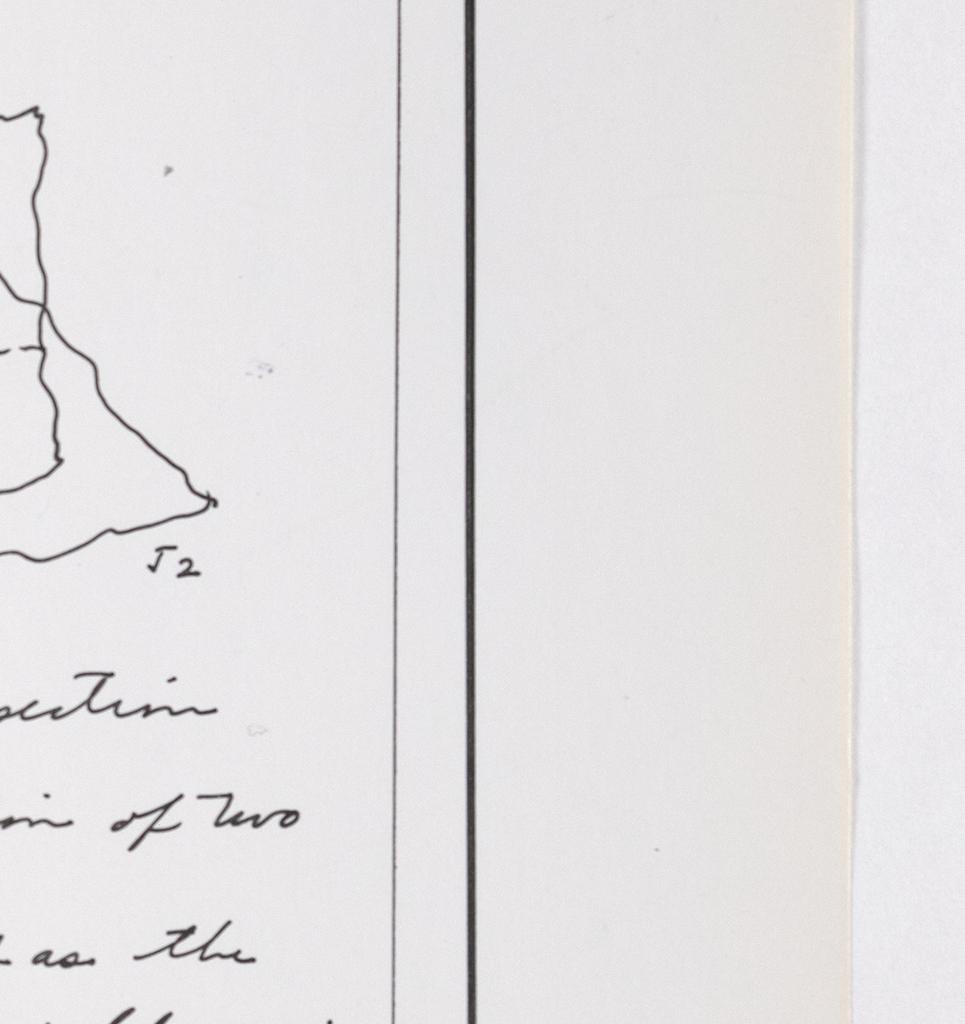 J2
section
of two
as the